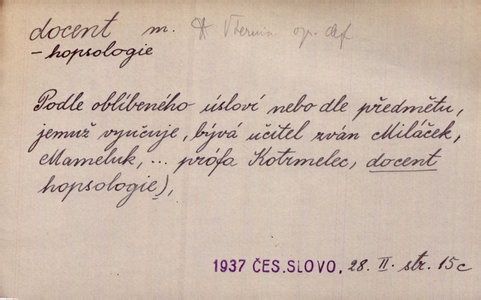 docent m.
- hopsologie
Podle oblíbeného úsloví nebo dle předmětu,
jemuž vyučuje, bývá učitel zván Miláček,
Mameluk, ... prófa Kotrmelec, docent
hopsologie),
1937 ČES. SLOVO, 28. II. str. 15c